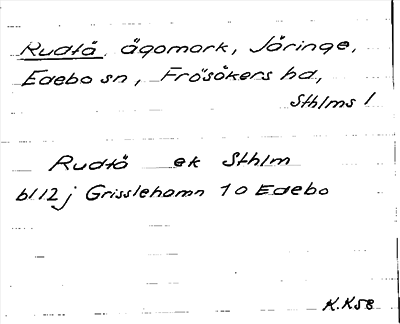 Rudtå, ägomark, Jåringe,
Edebo sn, Frösåkers hd,
Sthlms l
Rudtå ek Sthlm
bl 12 j Grisslehamn 10 Edebo
K.K58